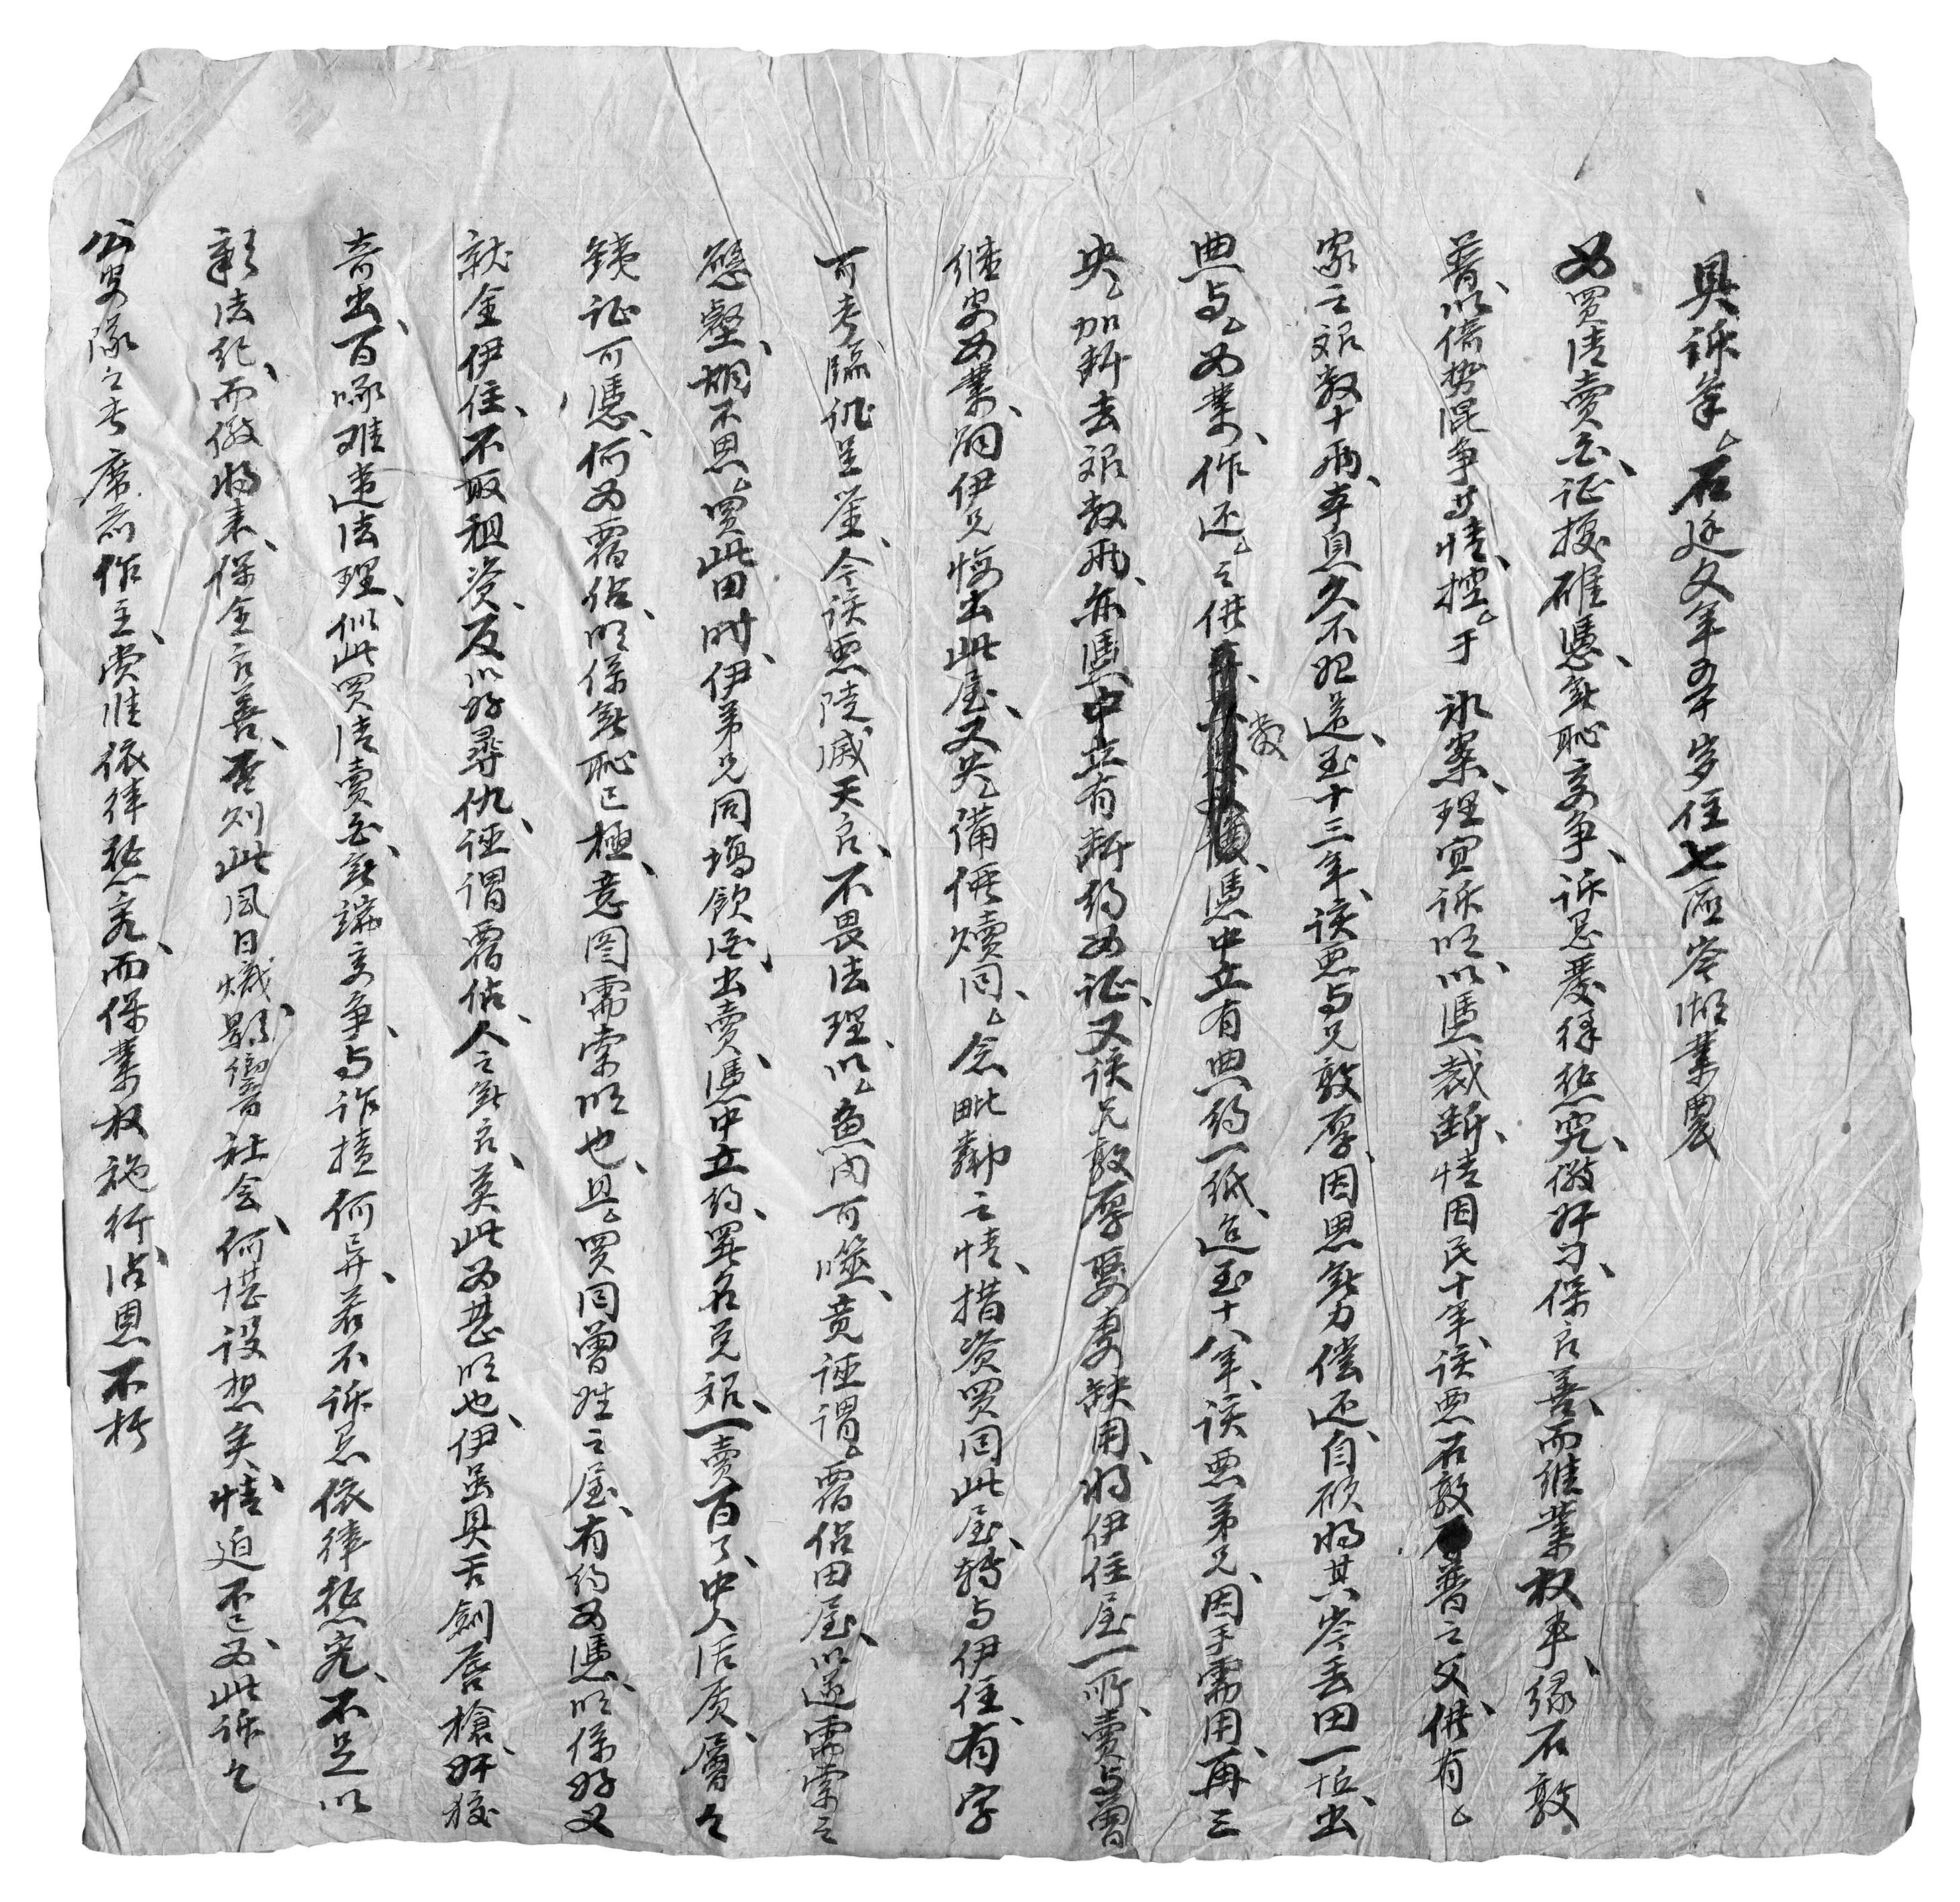 具诉人乙石廷文年五十岁住七区岑𡶶业农
为买清卖白证据确凭无耻妄争诉恳严律惩究儆奸刁保良善而维业权事缘石敦
普以借势混争等情控乙于 冰案理宜诉明以凭裁断情因民十年该恶石敦普之父供有乙
家之银数十两本息久不还至十三年该恶与兄敦厚因思无力偿还自愿将其岑丢田一坵出
典与乙为业作还乙之供数凭中立有典约一纸迨至十八年该恶弟兄因手需用再三
央乙加断去银数两亦凭中立有断约为证又该兄敦厚娶妻缺用将伊住屋一所卖与曾
继安为业嗣伊兄悔出此屋又央乙备价赎回乙念毗邻之情措资买回此屋转与伊住有字
可考临讯呈鉴今该恶陡灭天良不畏法理以乙鱼肉可噬竟诬谓乙霸佔田屋以遂需索之
欲壑期不思乙买此田时伊弟兄同场饮酒出卖凭中立约异名兑银一卖百了中人活质层层
铁证可凭何为霸佔明系无耻已极意图需索明也且乙买回曾姓之屋有约为凭明系好义
就全伊住不取租资反以好寻仇诬谓霸佔人之无良莫此为甚明也伊虽具舌剑唇枪奸狡
奇出百喙难违法理似此买清卖白无端妄争与诈搕何异若不诉恳依律惩究不足以
彰法纪而儆将来保全良善否则此风日炽影响社会何堪设想矣情迫不已为此诉乞
公安队之长席前作主赏准依律惩究而保业权施行沾恩不朽